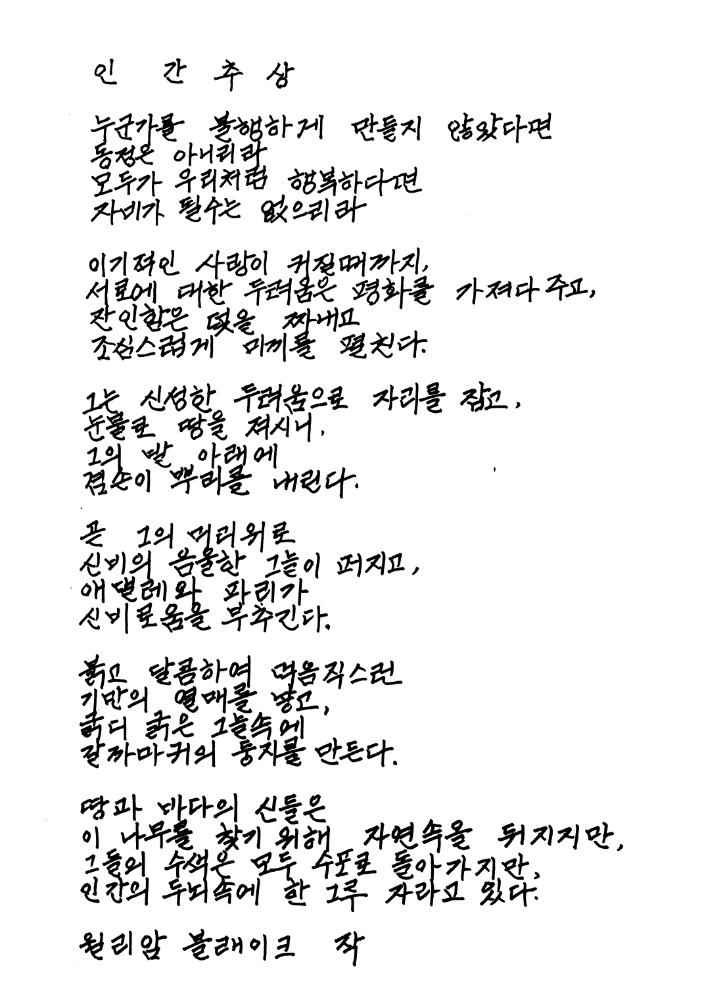 인 간 추 상
누군가를 불행하게 만들지 않았다면
동정은 아니리라
모두가 우리처럼 행복하다면
자비가 필수는 없으리라
이기적인 사랑이 커질때까지,
서로에 대한 두려움은 평화를 가져다 주고,
잔인함은 덫을 짜내고
조심스럽게 미끼를 펼친다.
그는 신성한 두려움으로 자리를 잡고,
눈물로 땅을 적시니,
그의 발 아래에
겸손이 뿌리를 내린다.
곧 그의 머리위로
신비의 음울한 그늘이 퍼지고,
애벌레와 파리가
신비로움을 부추긴다.
붉고 달콤하여 먹음직스런
기만의 열매를 낳고,
굵디 굵은 그늘속에
갈까마귀의 둥지를 만든다.
땅과 바다의 신들은
이 나무를 찾기 위해 자연속을 뒤지지만,
그들의 수색은 모두 수포로 돌아가지만,
인간의 두뇌속에 한 그루 자라고 있다.
윌리암 블레이크 작